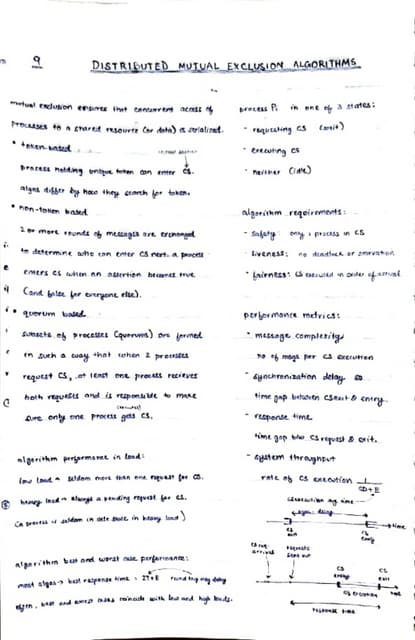 9
DISTRIBUTED MUTUAL EXCLUSION ALGORITHMS
mutual exclusion ensures that concurrent access of
processes to a shared resource (or data) is serialized.
• token-based
process holding unique token can enter CS.
algos differ by how they search for token.
• non-token based
2 or more rounds of messages are exchanged
to determine who can enter CS next. a process
enters CS when an assertion becomes true
(and false for everyone else).
• quorum based
subsets of processes (quorums) are formed
in such a way that when 2 processes
request CS, at least one process recieves
both requests and is responsible to make
sure only one process gets CS.
algorithm performance in load:
low load → seldom more than one request for CS.
heavy load → always a pending request for CS.
(a process is seldom in idle state in heavy load)
algorithm best and worst case performance:
most algos → best response time = 2T+E round trip msg delay
often, best and worst cases coincide with low and high loads.
process Pi in one of 3 states:
• requesting CS (wait)
• executing CS
• neither (idle)
algorithm requirements:
• safety: only 1 process in CS
• liveness: no deadlock or starvation
• fairness: CS executed in order of arrival
performance metrics:
• message complexity
no of msgs per CS execution
• synchronization delay
time gap between CS exit & entry
• response time
time gap b/w CS request & exit.
• system throughput
rate of CS execution 1
SD+E
CS execution avg time
sync. delay
time
CS exit
CS entry
CS req. arrival
requests sent out
CS entry
CS exit
CS execution
response time